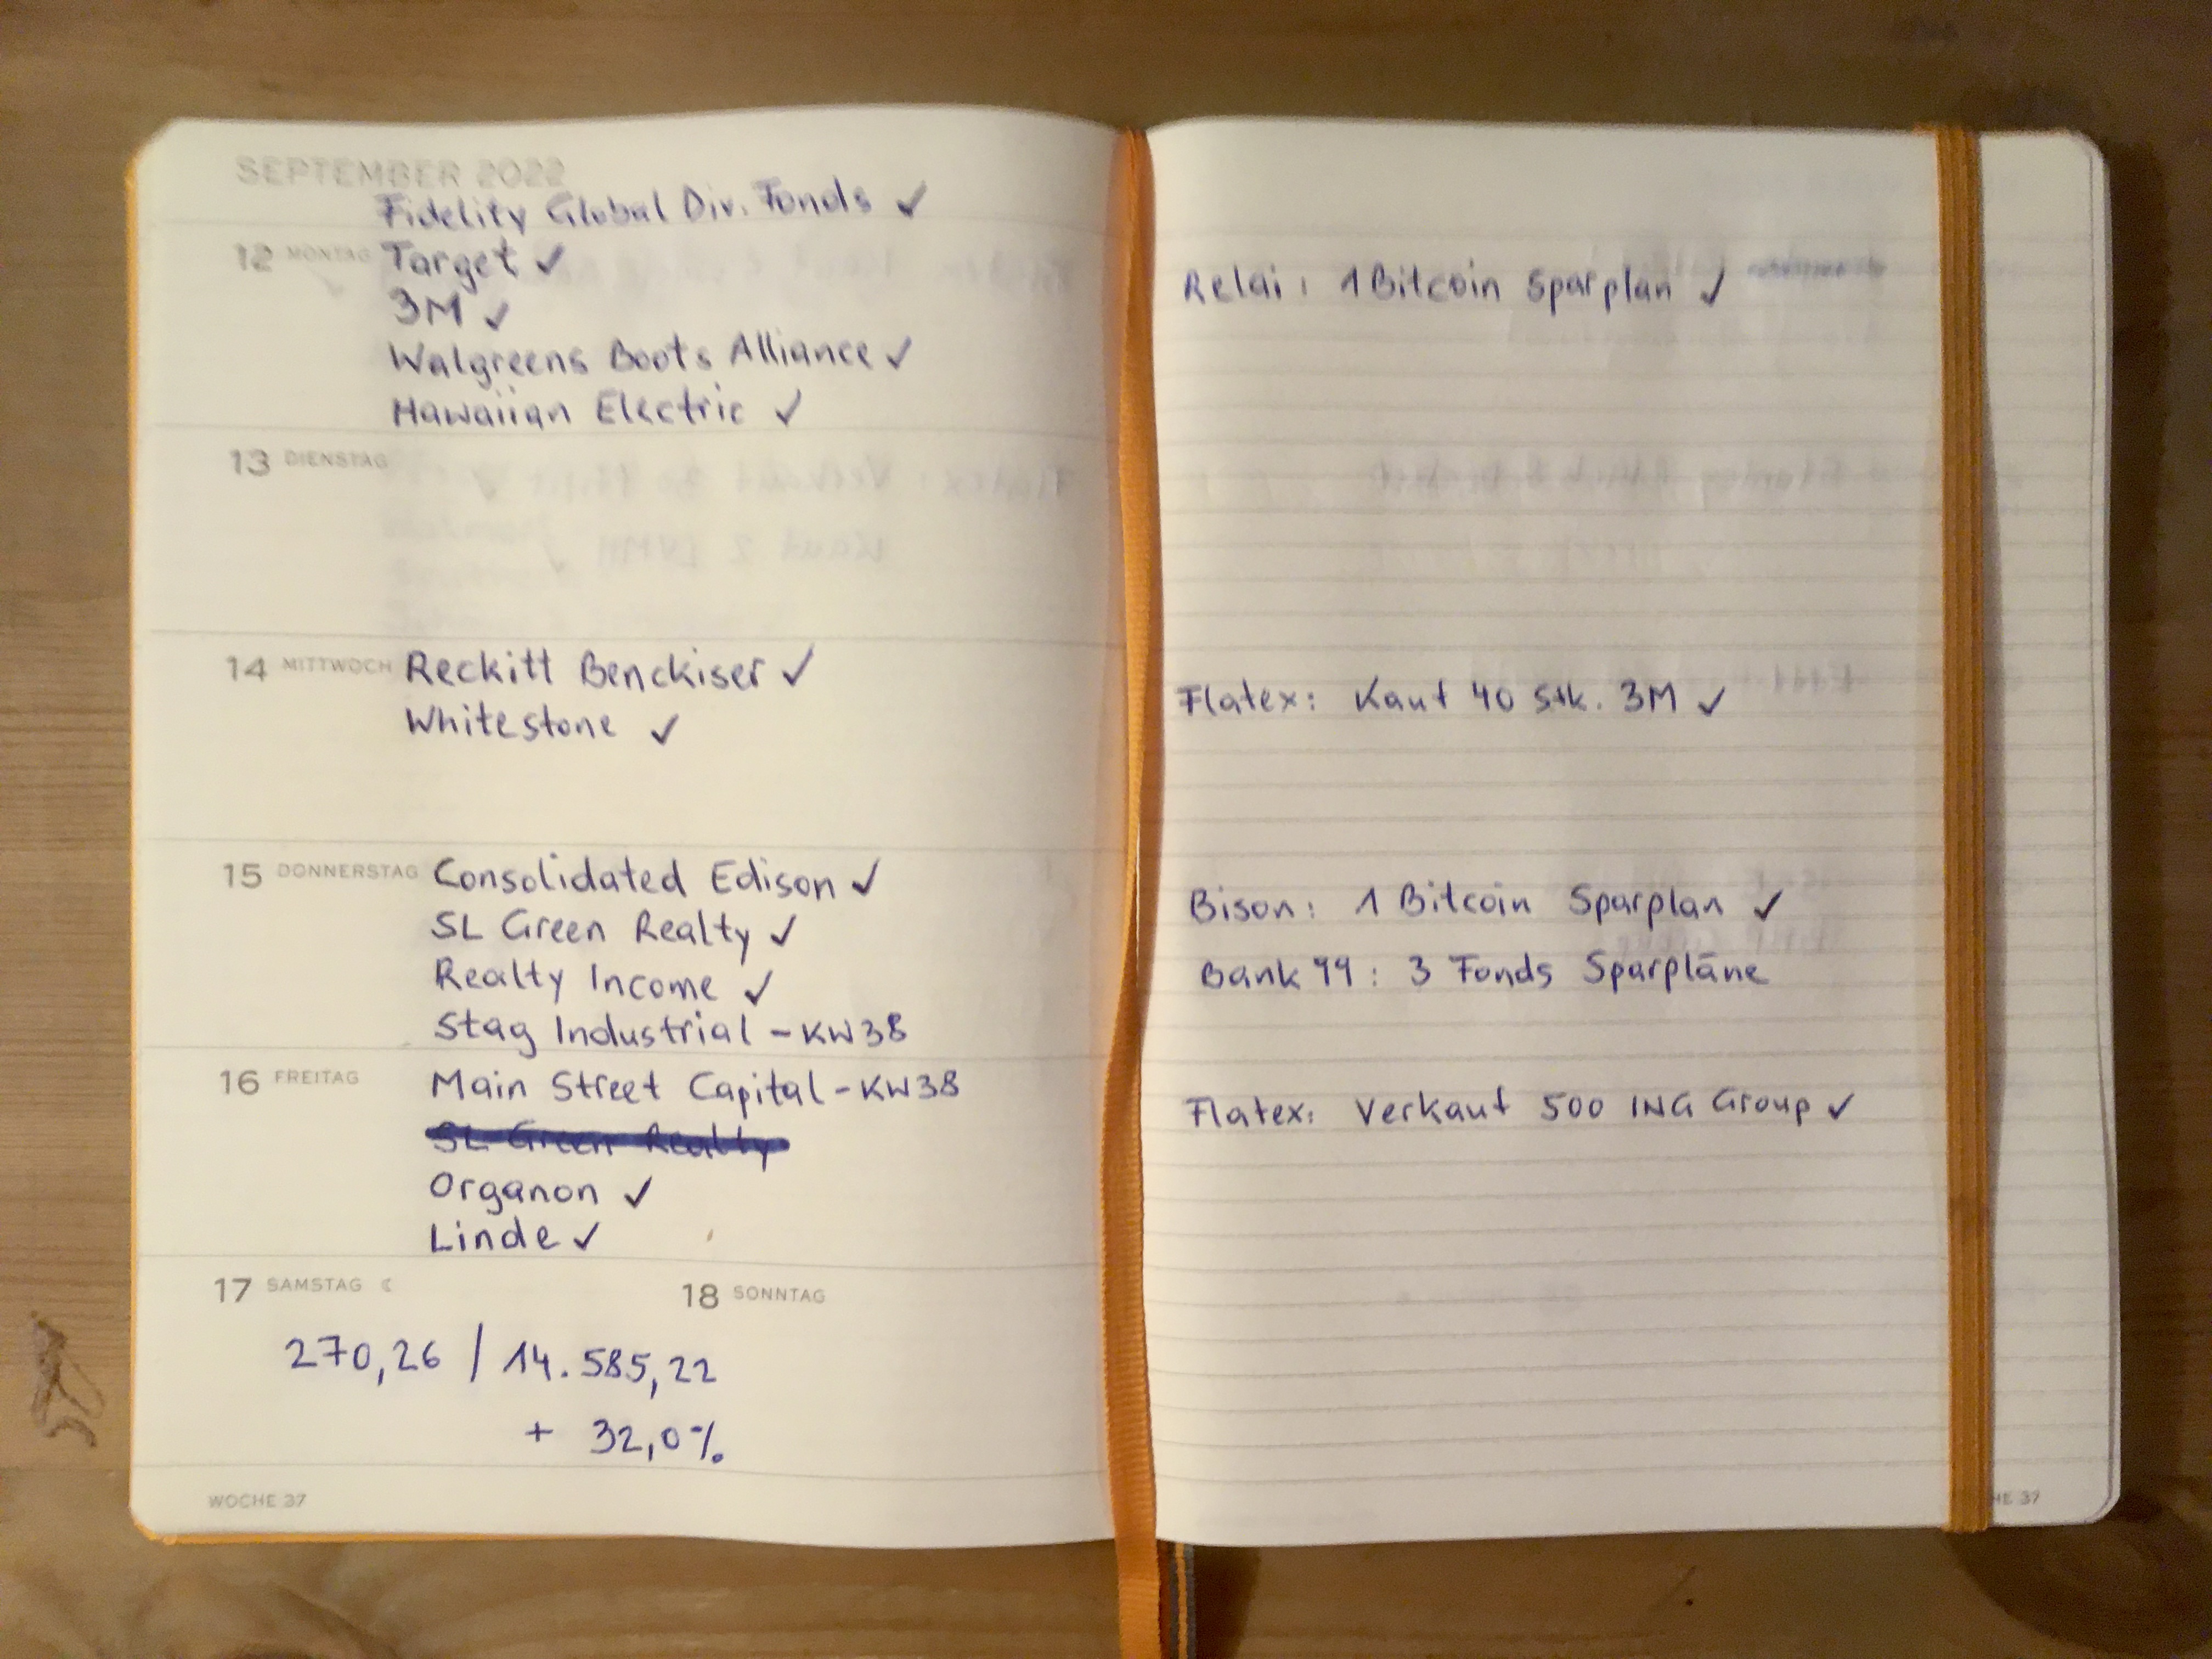 SEPTEMBER 2022
Fidelity Global Div. Fonds ✓
12 MONTAG Target ✓
3M ✓
Walgreens Boots Alliance ✓
Hawaiian Electric ✓
13 DIENSTAG
14 MITTWOCH Reckitt Benckiser ✓
Whitestone ✓
15 DONNERSTAG Consolidated Edison ✓
SL Green Realty ✓
Realty Income ✓
Stag Industrial - KW38
16 FREITAG Main Street Capital - KW38
SL Green Realty
Organon ✓
Linde ✓
17 SAMSTAG 18 SONNTAG
270,26 / 14.585,22
+ 32,0%
WOCHE 37
Relai: 1 Bitcoin Sparplan ✓
Flatex: Kauf 40 Stk. 3M ✓
Bison: 1 Bitcoin Sparplan ✓
Bank 99: 3 Fonds Sparpläne
Flatex: Verkauf 500 ING Group ✓
HE 37